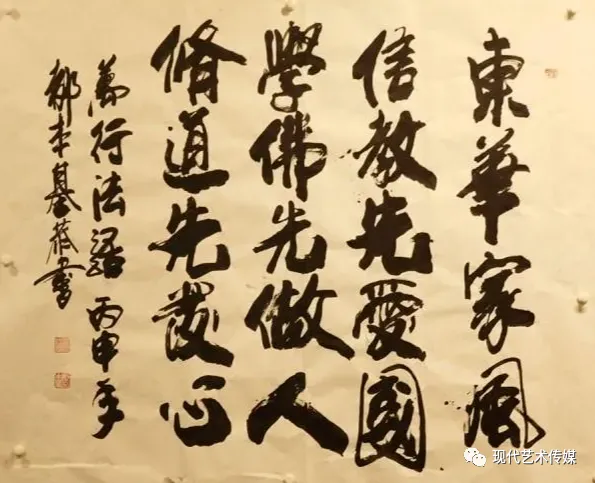 東華家風
信教先愛國
學佛先做人
脩道先發心
萬行法語 丙申年
都本基敬書
现代艺术传媒